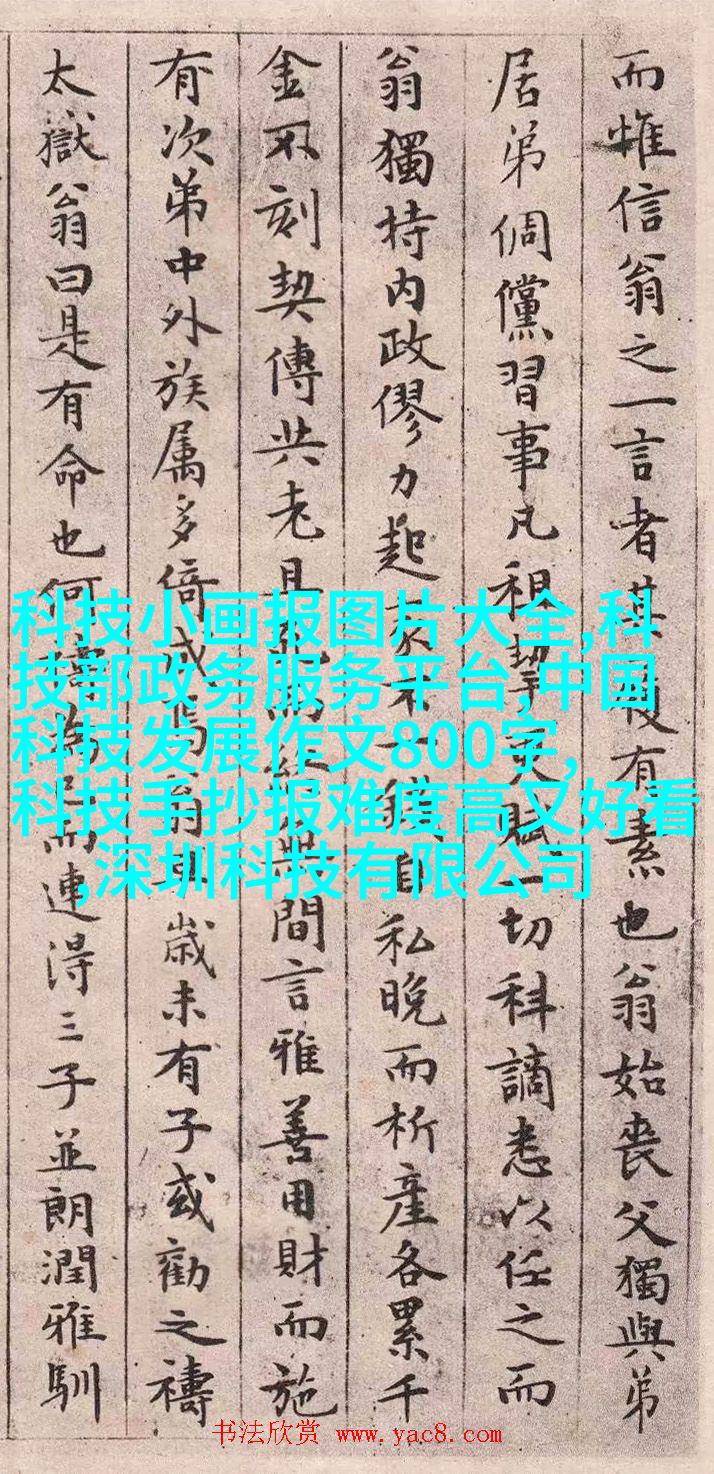 而惟信翁之一言者其有素也翁始喪父獨與弟
居弟倜儻習事凡租賦一切科謫悉以任之而
翁獨持内政僇力起家不一錢自私晚而析產各累千
金不刻契傳共老且間言雅善用財而施
有次弟中外族属多倚成焉翁歲未有子或勸之禱
太嶽翁曰是有命也何禱為而連得三子並朗潤雅馴
科技小画报图片大全,科
技部政务服务平台,中国
科技发展作文800字,
科技手抄报难度高又好看
,深圳科技有限公司
书法欣赏 www.yac8.com